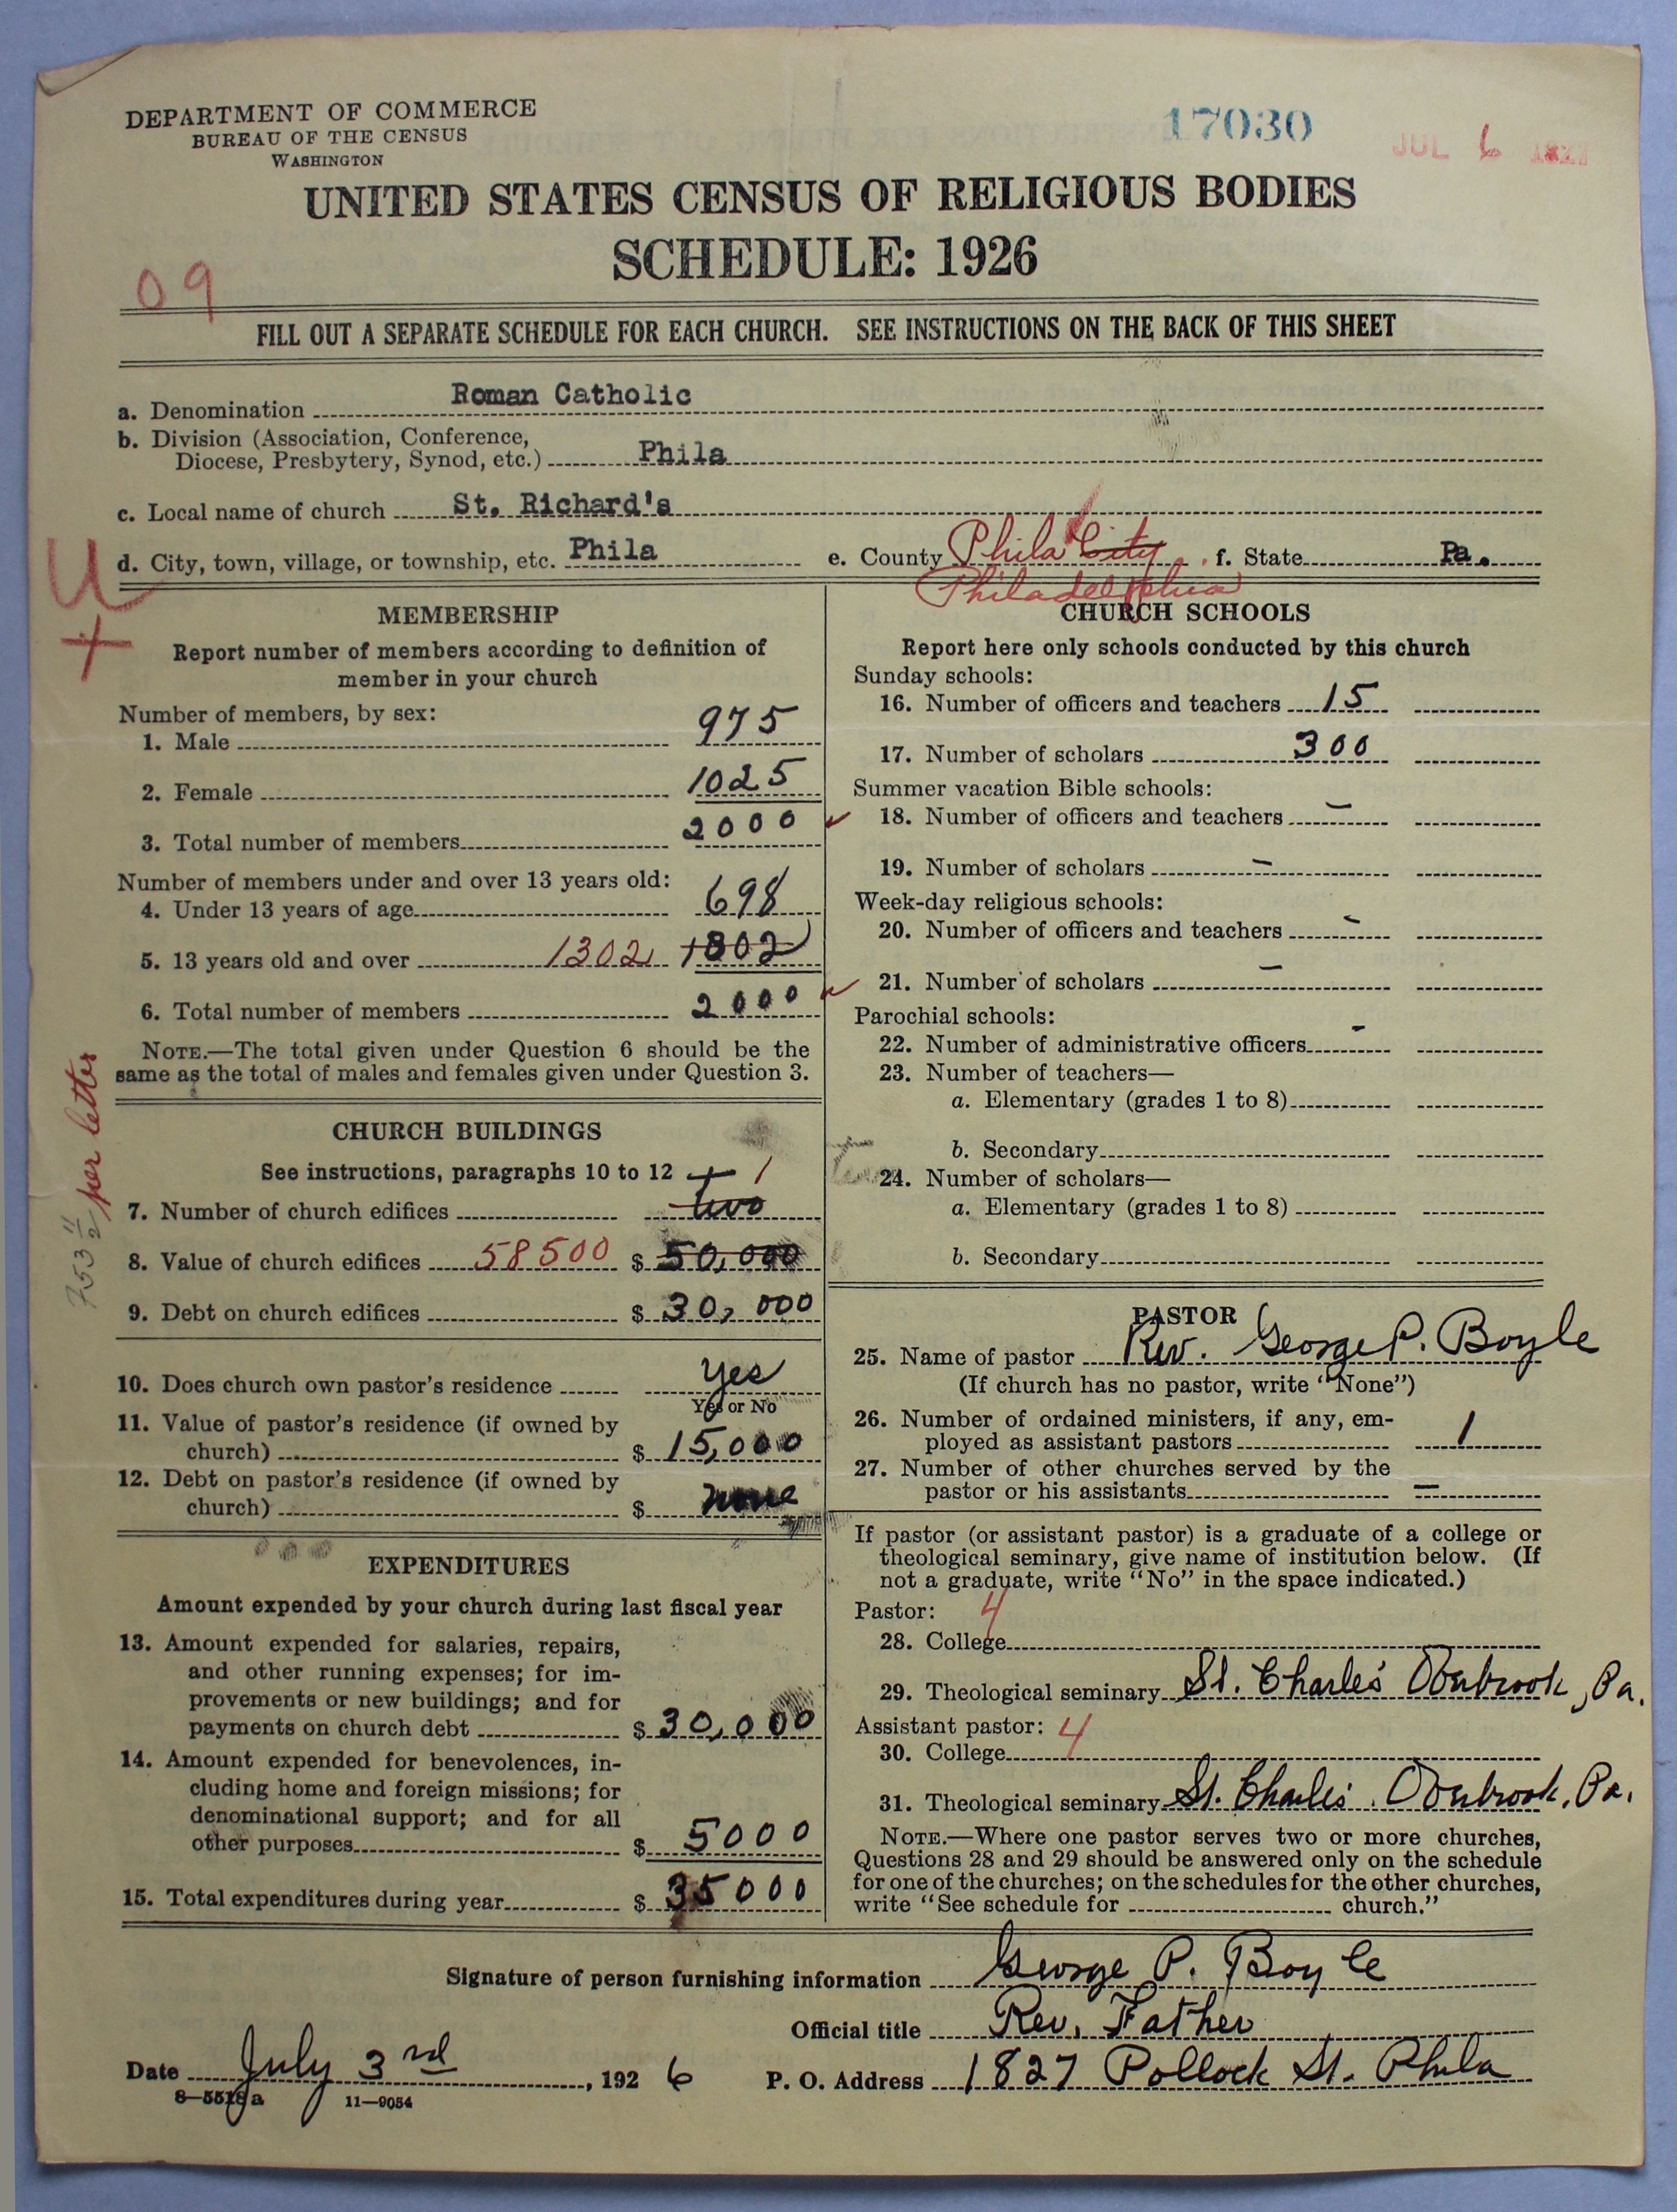 DEPARTMENT OF COMMERCE
BUREAU OF THE CENSUS
WASHINGTON
17030
JUL 6
UNITED STATES CENSUS OF RELIGIOUS BODIES
SCHEDULE: 1926
09
FILL OUT A SEPARATE SCHEDULE FOR EACH CHURCH. SEE INSTRUCTIONS ON THE BACK OF THIS SHEET
a. Denomination Roman Catholic
b. Division (Association, Conference,
Diocese, Presbytery, Synod, etc.) Phila
c. Local name of church St. Richard's
d. City, town, village, or township, etc. Phila e. County Phila City f. State Pa.
Philadelphia
U
+
MEMBERSHIP
Report number of members according to definition of
member in your church
Number of members, by sex:
1. Male 975
2. Female 1025
3. Total number of members 2000
Number of members under and over 13 years old:
4. Under 13 years of age 698
5. 13 years old and over 1302 1802
6. Total number of members 2000
NOTE.—The total given under Question 6 should be the
same as the total of males and females given under Question 3.
per letter
CHURCH BUILDINGS
See instructions, paragraphs 10 to 12 1
7. Number of church edifices two
8. Value of church edifices 58500 $ 50,000
9. Debt on church edifices $ 30,000
10. Does church own pastor's residence yes
Yes or No
11. Value of pastor's residence (if owned by
church) $ 15,000
12. Debt on pastor's residence (if owned by
church) $ none
EXPENDITURES
Amount expended by your church during last fiscal year
13. Amount expended for salaries, repairs,
and other running expenses; for im-
provements or new buildings; and for
payments on church debt $ 30,000
14. Amount expended for benevolences, in-
cluding home and foreign missions; for
denominational support; and for all
other purposes $ 5000
15. Total expenditures during year $ 35000
CHURCH SCHOOLS
Report here only schools conducted by this church
Sunday schools:
16. Number of officers and teachers 15
17. Number of scholars 300
Summer vacation Bible schools:
18. Number of officers and teachers -
19. Number of scholars -
Week-day religious schools:
20. Number of officers and teachers -
21. Number of scholars -
Parochial schools:
22. Number of administrative officers -
23. Number of teachers—
a. Elementary (grades 1 to 8)
b. Secondary
24. Number of scholars—
a. Elementary (grades 1 to 8)
b. Secondary
PASTOR
25. Name of pastor Rev. George P. Boyle
(If church has no pastor, write "None")
26. Number of ordained ministers, if any, em-
ployed as assistant pastors 1
27. Number of other churches served by the
pastor or his assistants -
If pastor (or assistant pastor) is a graduate of a college or
theological seminary, give name of institution below. (If
not a graduate, write "No" in the space indicated.)
Pastor: 4
28. College
29. Theological seminary St. Charles Overbrook, Pa.
Assistant pastor: 4
30. College
31. Theological seminary St. Charles Overbrook, Pa.
NOTE.—Where one pastor serves two or more churches,
Questions 28 and 29 should be answered only on the schedule
for one of the churches; on the schedules for the other churches,
write "See schedule for church."
Signature of person furnishing information George P. Boyle
Official title Rev. Father
Date July 3rd, 1926 P. O. Address 1827 Pollock St. Phila
8—5518a 11—9054